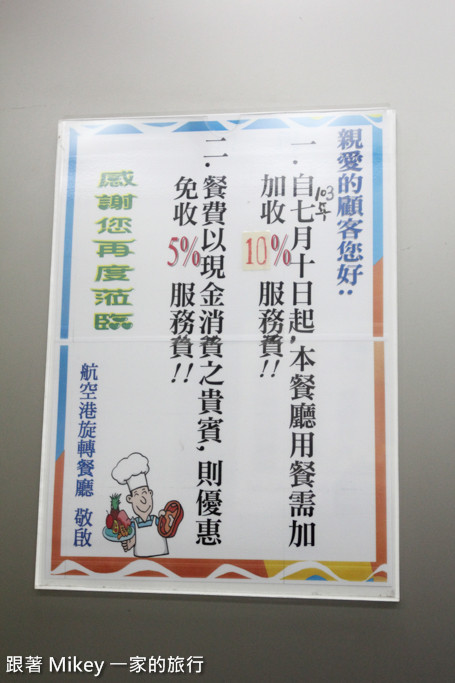 親愛的顧客您好：
一．自103年七月十日起，本餐廳用餐需加
加收10%服務費！！
二．餐費以現金消費之貴賓，則優惠
免收5%服務費！！
感謝您再度蒞臨
航空港旋轉餐廳 敬啟
跟著 Mikey 一家的旅行